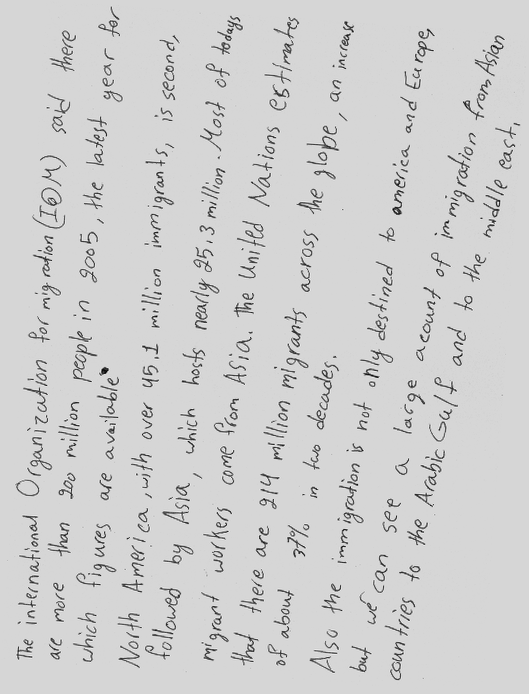 The international Organization for migration (IOM) said there
are more than 200 million people in 2005, the latest year for
which figures are available.
North America, with over 45.1 million immigrants, is second,
followed by Asia, which hosts nearly 25.3 million. Most of todays
migrant workers come from Asia. The United Nations estimates
that there are 214 million migrants across the globe, an increase
of about 37% in two decades.
Also the immigration is not only destined to america and Europe,
but we can see a large acount of immigration from Asian
countries to the Arabic Gulf and to the middle east,